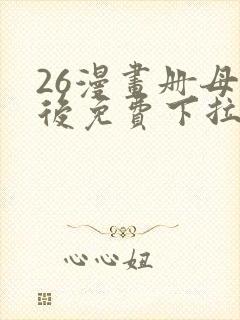 26漫畫册母
後免費下拉
心心妞